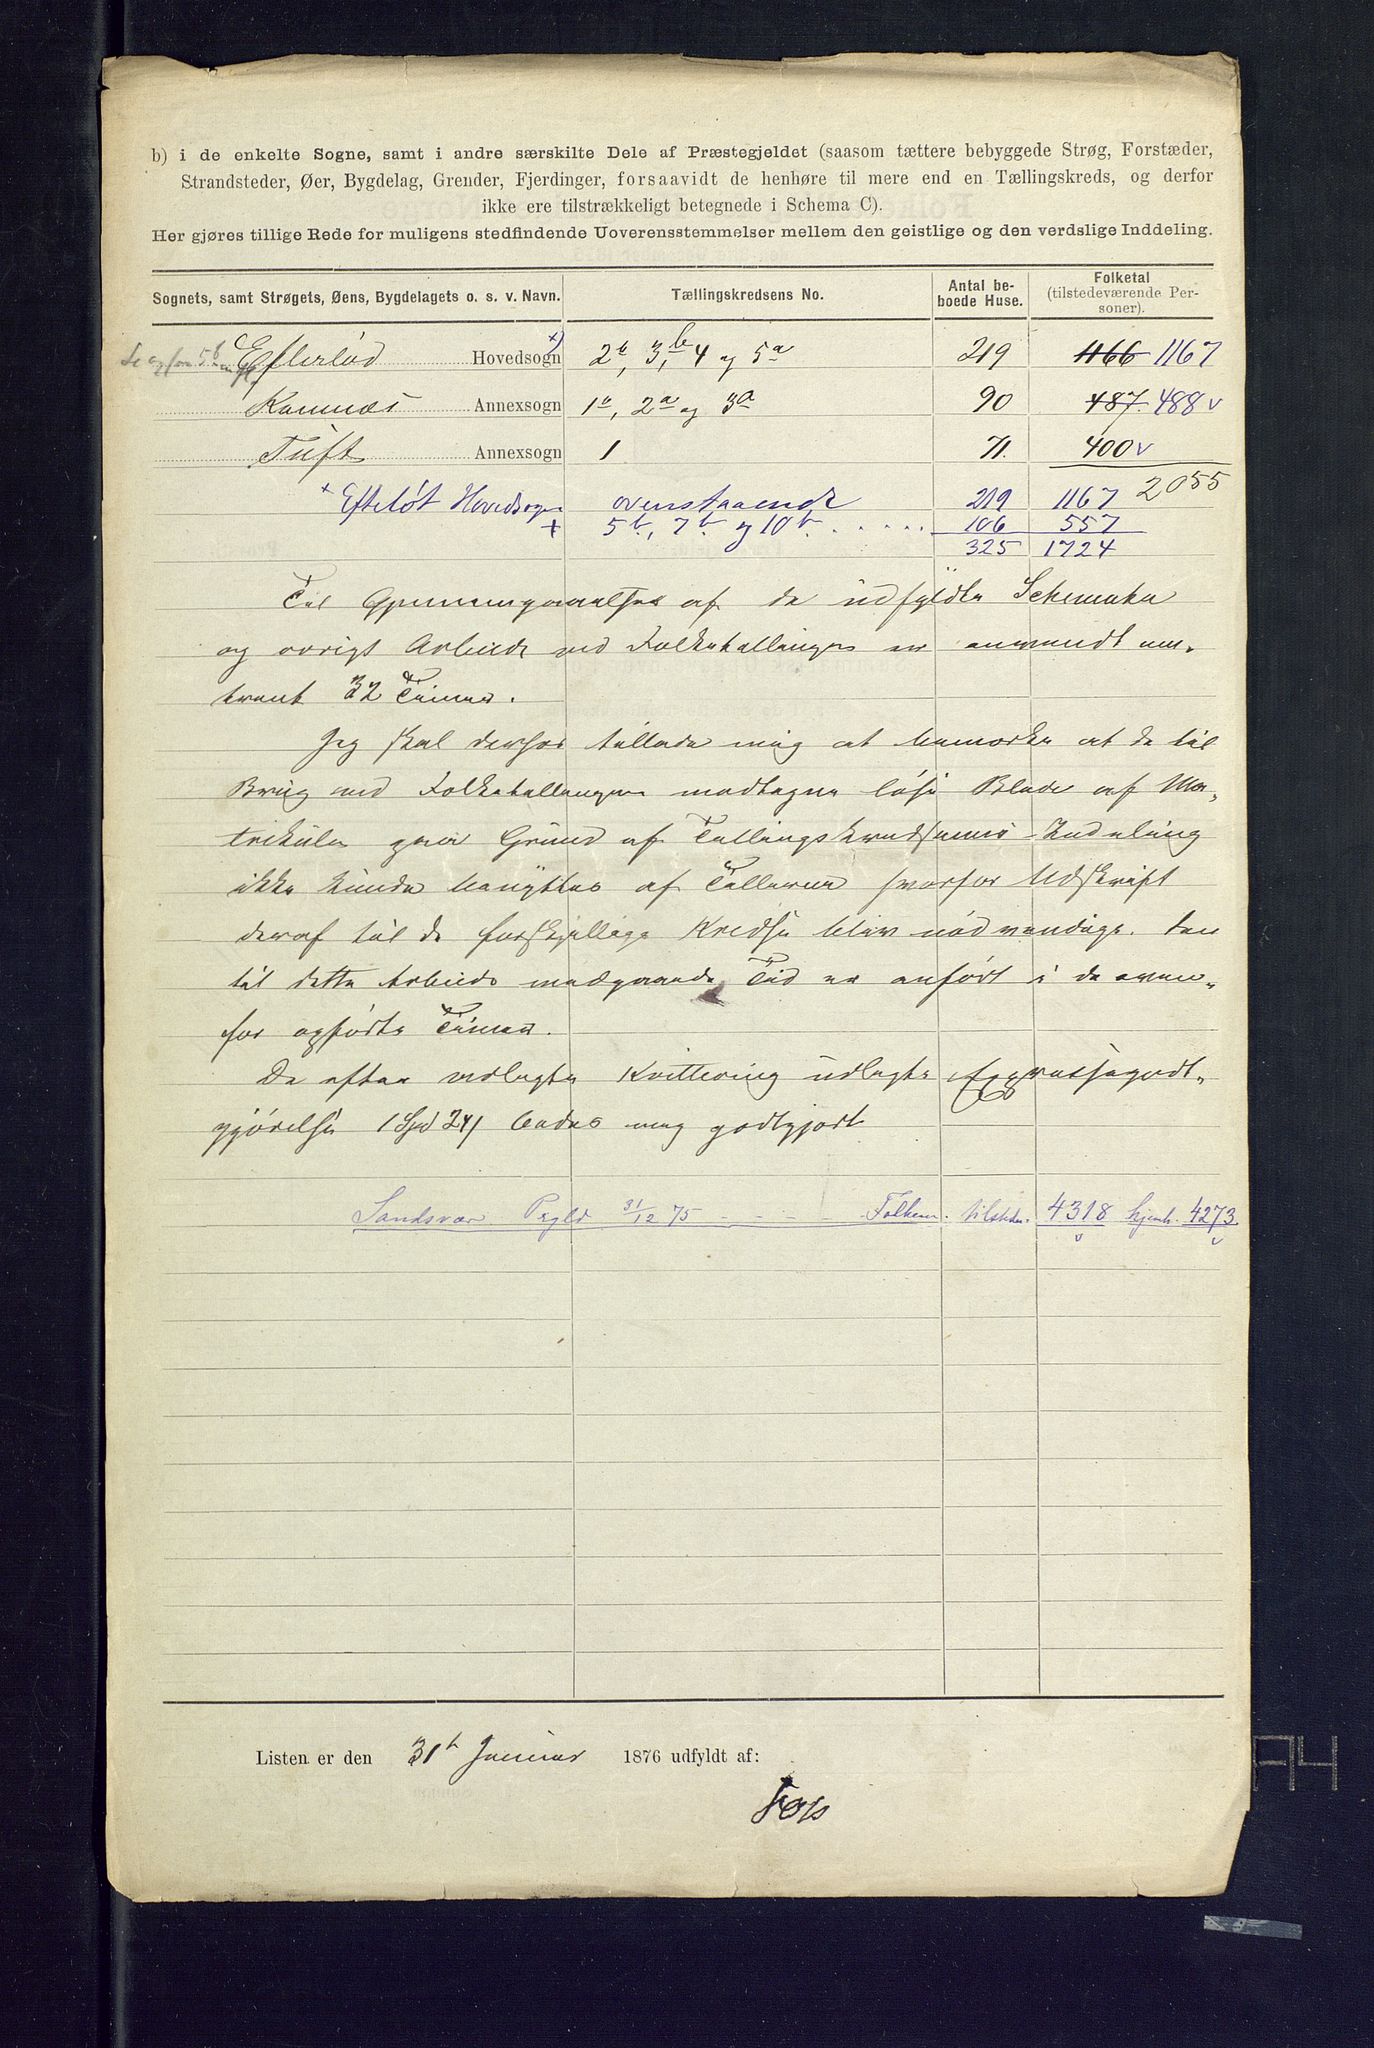 b) i de enkelte Sogne, samt i andre særskilte Dele af Præstegjeldet (saasom tættere bebyggede Strøg, Forstæder,
Strandsteder, Øer, Bygdelag, Grender, Fjerdinger, forsaavidt de henhøre til mere end en Tællingskreds, og derfor
ikke ere tilstrækkeligt betegnede i Schema C).
Her gjøres tillige Rede for muligens stedfindende Uoverensstemmelser mellem den geistlige og den verdslige Inddeling.
Sognets, samt Strøgets, Øens, Bygdelagets o. s. v. Navn. Tællingskredsens No. Antal beboede Huse. Folketal (tilstedeværende Personer).
Efterlød Hovedsogn x) 2b, 3b, 4 og 5a 219 1166 1167
Komnæs Annexsogn 1a, 2a og 3a 90 487 488 v
Tuft Annexsogn 1 71. 400 v
2055
x Efteløt Hovedsogn ovenstaaende 219 1167
x 5b, 7b og 10b 106 557
325 1724
Til Gjennemgaaelse af de udfyldte Schemata
og øvrigt Arbeide ved Folketællingen er anvendt om-
trent 32 Timer.
Jeg skal derhos tillade mig at bemærke at de til
Brug ved Folketællingen modtagne løse Blade af Ma-
trikulen paa Grund af Tællingskredsenes Inddeling
ikke kunde benyttes af Tællerne hvorfor Udskrift
deraf til de forskjellige Kredse blev nødvendige. Den
til dette Arbeide medgaaede Tid er anført i de oven-
for opførte Timer.
De efter vedlagte Kvittering udlagte Expressegodt-
gjørelse 1 Spd 24 bedes mig godtgjort
Sandsvær Pgjld 31/12 75 - - - - Folkem. tilstede. 4318 hjemh. 4273.
v v
Listen er den 31te Januar 1876 udfyldt af: